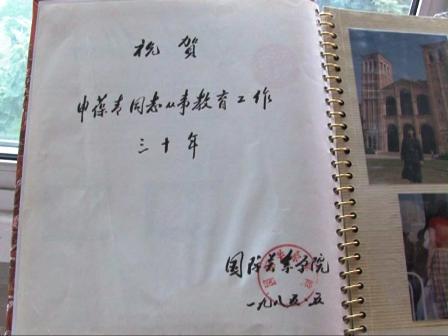 祝賀
申葆青同志从事教育工作
三十年
国际关系学院
一九八五·五